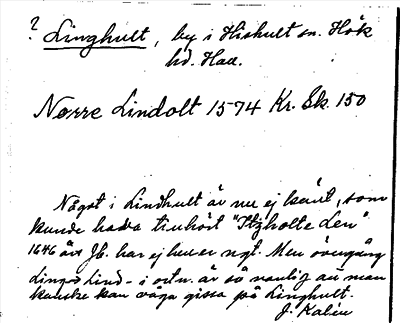 ? Linghult, by i Hishult sn. Hök
hd. Hall.
Norre Lindolt 1574 Kr. Sk. 150
Något i Lindhult är nu ej känt, som
kunde hava tillhört "Itzholte Len"
1646 års Jb. har ej heller ngt. Men övergång
Ling- > Lind- i ortn. är så vanlig att man
kanske kan våga gissa på Linghult.
J. Kalin